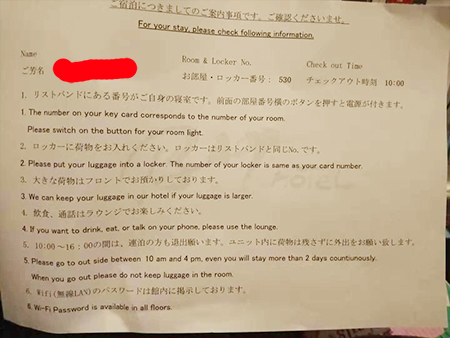 ご宿泊につきましてのご案内事項です。ご確認くださいませ。
For your stay, please check following information.
Name Room & Locker No. Check out Time
ご芳名 お部屋・ロッカー番号： 530 チェックアウト時刻 10:00
1. リストバンドにある番号がご自身の寝室です。前面の部屋番号横のボタンを押すと電源が付きます。
1. The number on your key card corresponds to the number of your room.
Please switch on the button for your room light.
2. ロッカーに荷物をお入れください。ロッカーはリストバンドと同じNo.です。
2. Please put your luggage into a locker. The number of your locker is same as your card number.
3. 大きな荷物はフロントでお預かりしております。
3. We can keep your luggage in our hotel if your luggage is larger.
4. 飲食、通話はラウンジでお楽しみください。
4. If you want to drink, eat, or talk on your phone, please use the lounge.
5. 10:00～16：00の間は、連泊の方も退出願います。ユニット内に荷物は残さずに外出をお願い致します。
5. Please go to out side between 10 am and 4 pm, even you will stay more than 2 days countiunously.
When you go out please do not keep luggage in the room.
6. Wifi(無線LAN)のパスワードは館内に掲示しております。
6. Wi-Fi Password is available in all floors.